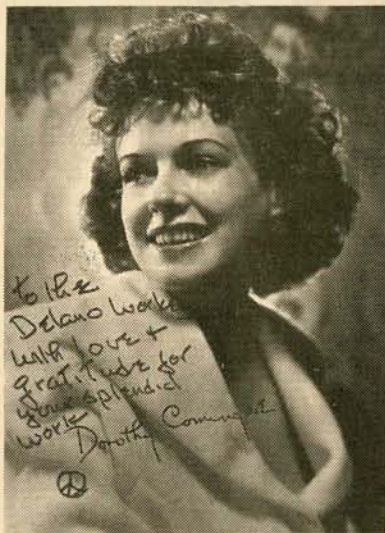 to the
Delano Workers
with love +
gratitude for
your splendid
work
Dorothy Comingore